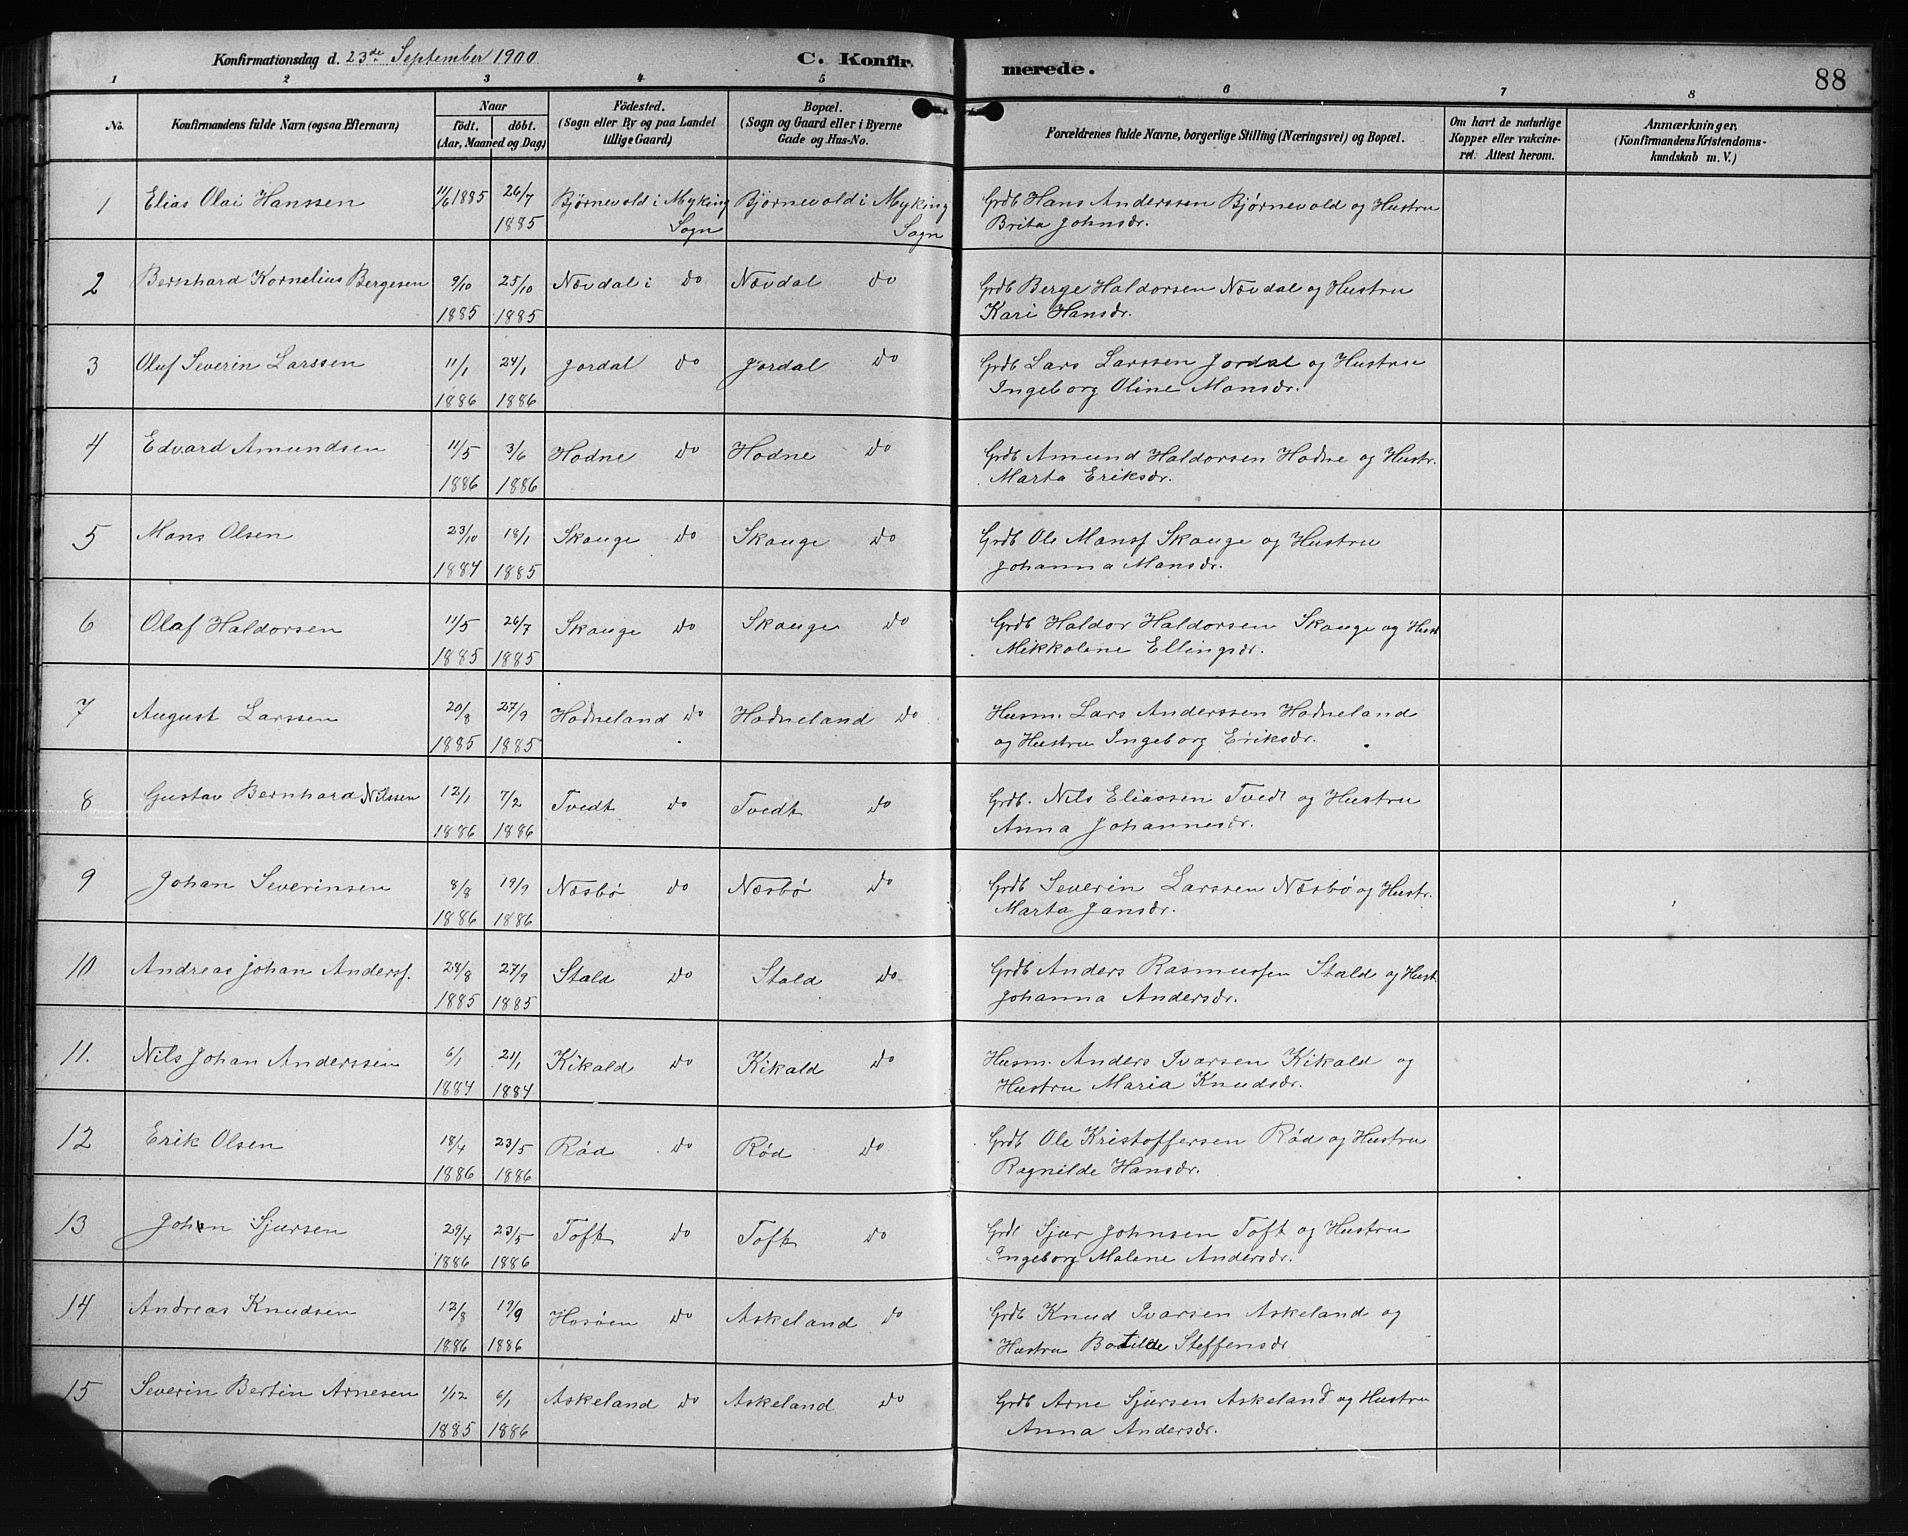 Konfirmationsdag d. 23de September 1900 C. Konfir- merede. 88
1 2 3 4 5 6 7 8
No. Konfirmandens fulde Navn (ogsaa Efternavn) Naar Födested. Bopæl. Forældrenes fulde Navne, borgerlige Stilling (Næringsvei) og Bopæl. Om havt de naturlige Anmærkninger.
födt. döbt. (Sogn eller By og paa Landet (Sogn og Gaard eller i Byerne Kopper eller vakcine- (Konfirmandens Kristendoms-
(Aar, Maaned og Dag) tillige Gaard) Gade og Hus-No. ret. Attest herom. kundskab m. V.)
1 Elias Olai Hanssen 11/6 1885 26/7 Bjørnevold i Myking Bjørnevold i Myking Grdb Hans Anderssen Bjørnevold og Hustru
1885 Sogn Sogn Brita Johnsdr.
2 Bernhard Kornelius Bergesen 9/10 25/10 Nævdal i do Nævdal do Grdb Berge Haldorsen Nævdal og Hustru
1885 1885 Kari Hansdr.
3 Oluf Severin Larssen 11/1 24/1 Jordal do Jordal do Grdb Lars Larssen Jordal og Hustru
1886 1886 Ingeborg Oline Mansdr.
4 Edvard Amundsen 11/5 3/6 Hodne do Hodne do Grdb Amund Haldorsen Hodne og Hustr.
1886 1886 Marta Eriksdr.
5 Mons Olsen 23/10 18/1 Skauge do Skauge do Grdb Ole Mansf Skauge og Hustru
1884 1885 Johanna Mansdr.
6 Olaf Haldorsen 11/5 26/7 Skauge do Skauge do Grdb Haldor Haldorsen Skauge og Hust
1885 1885 Mikkoline Ellingsdr.
7 August Larssen 20/8 27/9 Hodneland do Hodneland do Husm. Lars Anderssen Hodneland
1885 1885 og Hustru Ingeborg Eriksdr.
8 Gustav Bernhard Nilssen 12/1 7/2 Tvedt do Tvedt do Grdb. Nils Eliassen Tvedt og Hustru
1886 1886 Anna Johannesdr.
9 Johan Severinsen 8/8 19/9 Næsbø do Næsbø do Grdb Severin Larssen Næsbø og Hustr.
1886 1886 Marta Jansdr.
10 Andreas Johan Andersf. 28/8 27/9 Stald do Stald do Grdb Anders Rasmussen Stald og Hust.
1885 1885 Johanna Andersdr.
11. Nils Johan Anderssen 6/1 21/1 Kikald do Kikald do Husm. Anders Ivarsen Kikald og
1884 1884 Hustru Maria Knudsdr.
12 Erik Olsen 18/4 23/5 Rød do Rød do Grdb Ole Kristoffersen Rød og Hustru
1886 1886 Ragnilde Hansdr.
13 Johan Sjursen 29/4 23/5 Toft do Toft do Grdb Sjur Johnsen Toft og Hustru
1886 1886 Ingeborg Malene Andersdr.
14 Andreas Knudsen 12/8 19/9 Hosøen do Askeland do Grdb Knud Ivarsen Askeland og
1886 1886 Hustru Botilde Steffensdr
15 Severin Bertin Arnesen 1/12 6/1 Askeland do Askeland do Grdb Arne Sjursen Askeland og Hustru
1885 1886 Anna Andersdr.